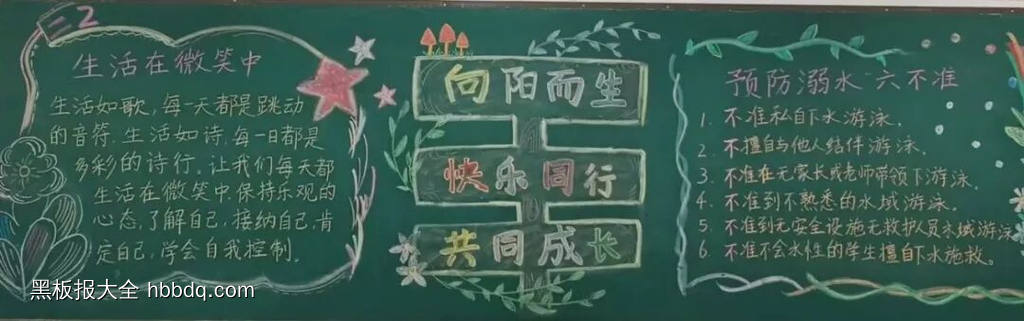 二2
生活在微笑中
生活如歌，每一天都是跳动
的音符，生活如诗，每一日都是
多彩的诗行。让我们每天都
生活在微笑中，保持乐观的
心态，了解自己，接纳自己，肯
定自己，学会自我控制。
向阳而生
快乐同行
共同成长
预防溺水"六不准
1. 不准私自下水游泳。
2. 不擅自与他人结伴游泳。
3. 不准在无家长或老师带领下游泳。
4. 不准到不熟悉的水域游泳。
5. 不准到无安全设施无救护人员水域游泳
6. 不准不会水性的学生擅自下水施救。
黑板报大全 hbbdq.com